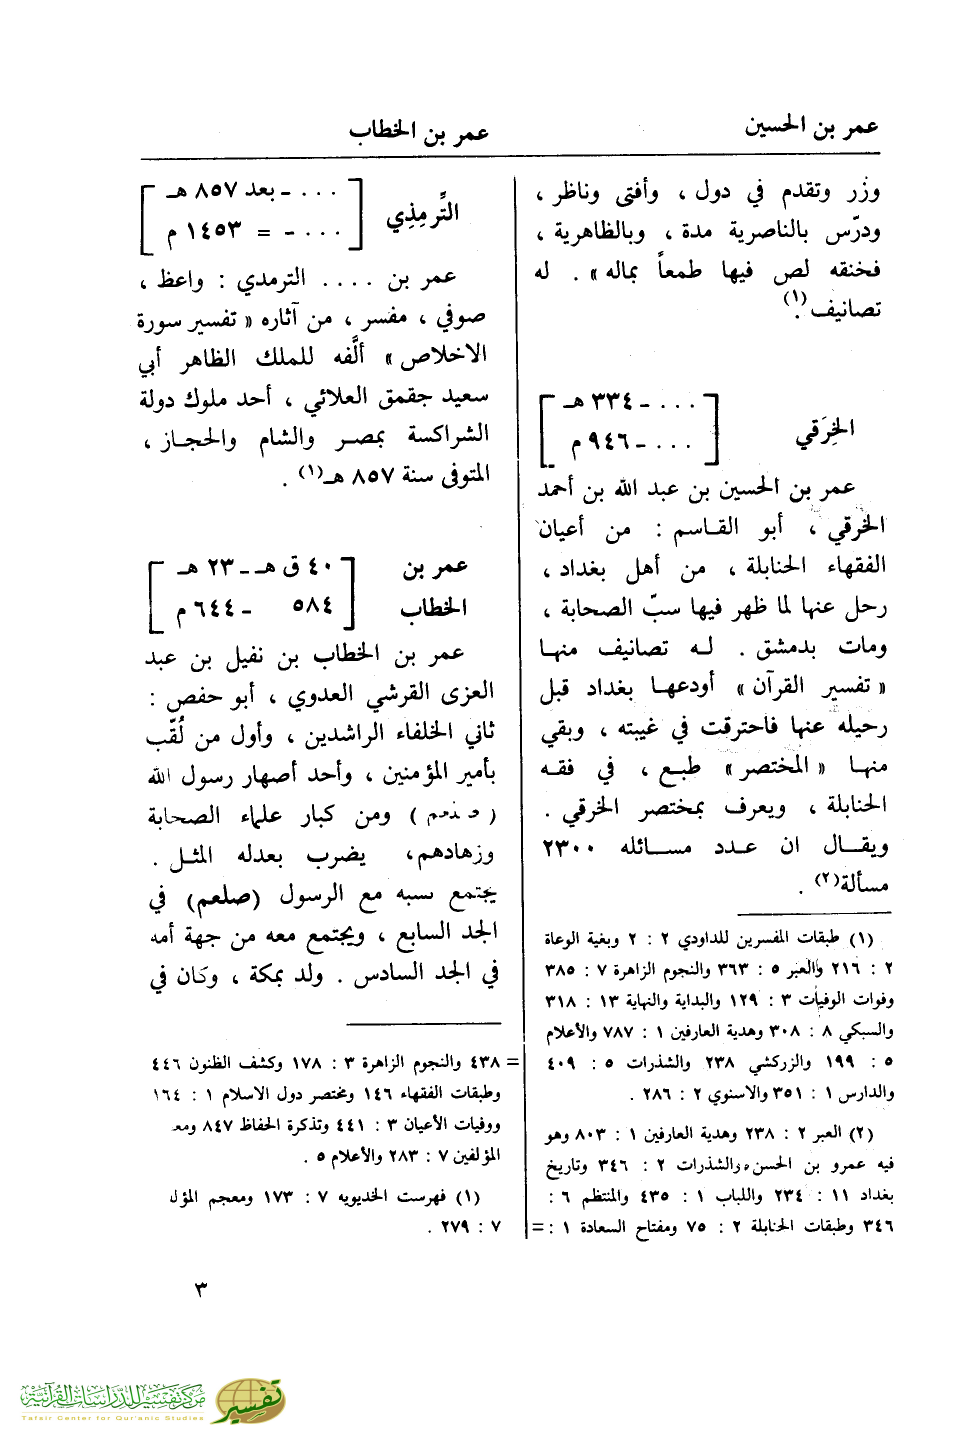 عمر بن الحسين
عمر بن الخطاب
وزر وتقدم في دول ، وأفتى وناظر ،
ودرّس بالناصرية مدة ، وبالظاهرية ،
فخنقه لص فيها طمعاً بماله » . له
تصانيف(١).
الخِرَقي
. . . ـ ٣٣٤ هـ
. . . ـ ٩٤٦ م
عمر بن الحسين بن عبد الله بن أحمد
الخرقي ، أبو القاسم : من أعيان
الفقهاء الحنابلة ، من أهل بغداد ،
رحل عنها لما ظهر فيها سبّ الصحابة ،
ومات بدمشق . له تصانيف منها
« تفسير القرآن » أودعها بغداد قبل
رحيله عنها فاحترقت في غيبته ، وبقي
منها « المختصر » طبع ، في فقه
الحنابلة ، ويعرف بمختصر الخرقي .
ويقال ان عدد مسائله ٢٣٠٠
مسألة(٢) .
(١) طبقات المفسرين للداودي ٢ : ٢ وبغية الوعاة
٢ : ٢١٦ والعبر ٥ : ٣٦٣ والنجوم الزاهرة ٧ : ٣٨٥
وفوات الوفيات ٣ : ١٢٩ والبداية والنهاية ١٣ : ٣١٨
والسبكي ٨ : ٣٠٨ وهدية العارفين ١ : ٧٨٧ والأعلام
٥ : ١٩٩ والزركشي ٢٣٨ والشذرات ٥ : ٤٠٩
والدارس ١ : ٣٥١ والاسنوي ٢ : ٢٨٦ .
(٢) العبر ٢ : ٢٣٨ وهدية العارفين ١ : ٨٠٣ وهو
فيه عمرو بن الحسن، والشذرات ٢ : ٣٤٦ وتاريخ
بغداد ١١ : ٢٣٤ واللباب ١ : ٤٣٥ والمنتظم ٦ :
٣٤٦ وطبقات الحنابلة ٢ : ٧٥ ومفتاح السعادة ١ : =
التِّرمِذِي
. . . ـ بعد ٨٥٧ هـ
. . . ـ = ١٤٥٣ م
عمر بن .... الترمدي : واعظ ،
صوفي ، مفسر ، من آثاره « تفسير سورة
الاخلاص » ألَّفه للملك الظاهر أبي
سعيد جقمق العلائي ، أحد ملوك دولة
الشراكسة بمصر والشام والحجاز ،
المتوفى سنة ٨٥٧ هـ(١) .
عمر بن
الخطاب
٤٠ ق هـ ـ ٢٣ هـ
٥٨٤ ـ ٦٤٤ م
عمر بن الخطاب بن نفيل بن عبد
العزى القرشي العدوي ، أبو حفص :
ثاني الخلفاء الراشدين ، وأول من لُقّب
بأمير المؤمنين ، وأحد أصهار رسول الله
( صلعم ) ومن كبار علماء الصحابة
وزهادهم، يضرب بعدله المثل .
يجتمع نسبه مع الرسول (صلعم) في
الجد السابع ، ويجتمع معه من جهة أمه
في الجد السادس . ولد بمكة ، وكان في
= ٤٣٨ والنجوم الزاهرة ٣ : ١٧٨ وكشف الظنون ٤٤٦
وطبقات الفقهاء ١٤٦ ومختصر دول الاسلام ١ : ١٦٤
ووفيات الأعيان ٣ : ٤٤١ وتذكرة الحفاظ ٨٤٧ ومعـ
المؤلفين ٧ : ٢٨٣ والأعلام ٥ .
(١) فهرست الخديويه ٧ : ١٧٣ ومعجم المؤل
٧ : ٢٧٩ .
٣
مركز تفسير للدراسات القرآنية
Tafsir Center for Qur'anic Studies
تفسير